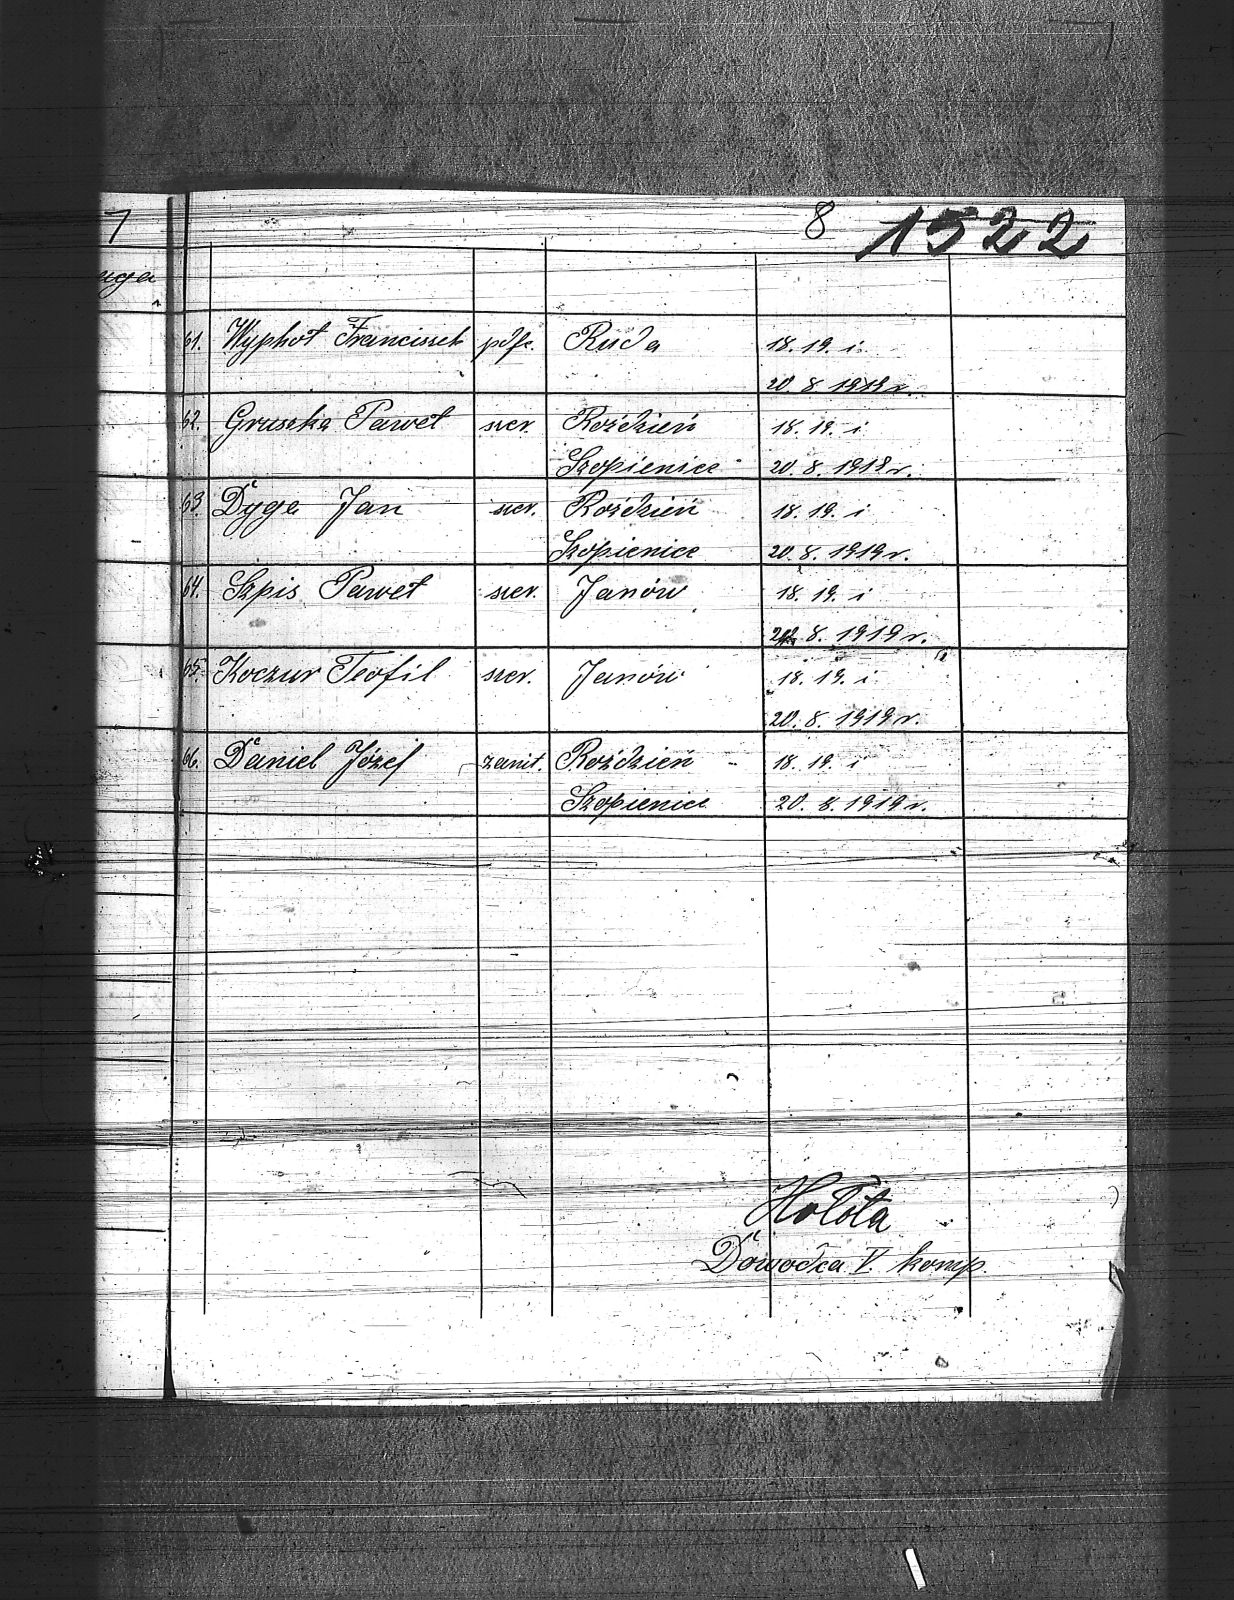 7
8 1522
uga
61. Wyphot Francissek pdfr. Ruda 18. 19. i
20. 8. 1919 r.
62. Gruszka Paweł szer. Roździeń 18. 19. i
Szopienice 20. 8. 1919 r.
63. Dyga Jan szer. Roździeń 18. 19. i
Szopienice 20. 8. 1919 r.
64. Szpis Paweł szer. Janów 18. 19. i
20. 8. 1919 r.
65. Koczur Teofil szer. Janów 18. 19. i
20. 8. 1919 r.
66. Daniel Józef zanit. Roździeń 18. 19. i
Szopienice 20. 8. 1919 r.
Hołota
Dowódca V. komp.